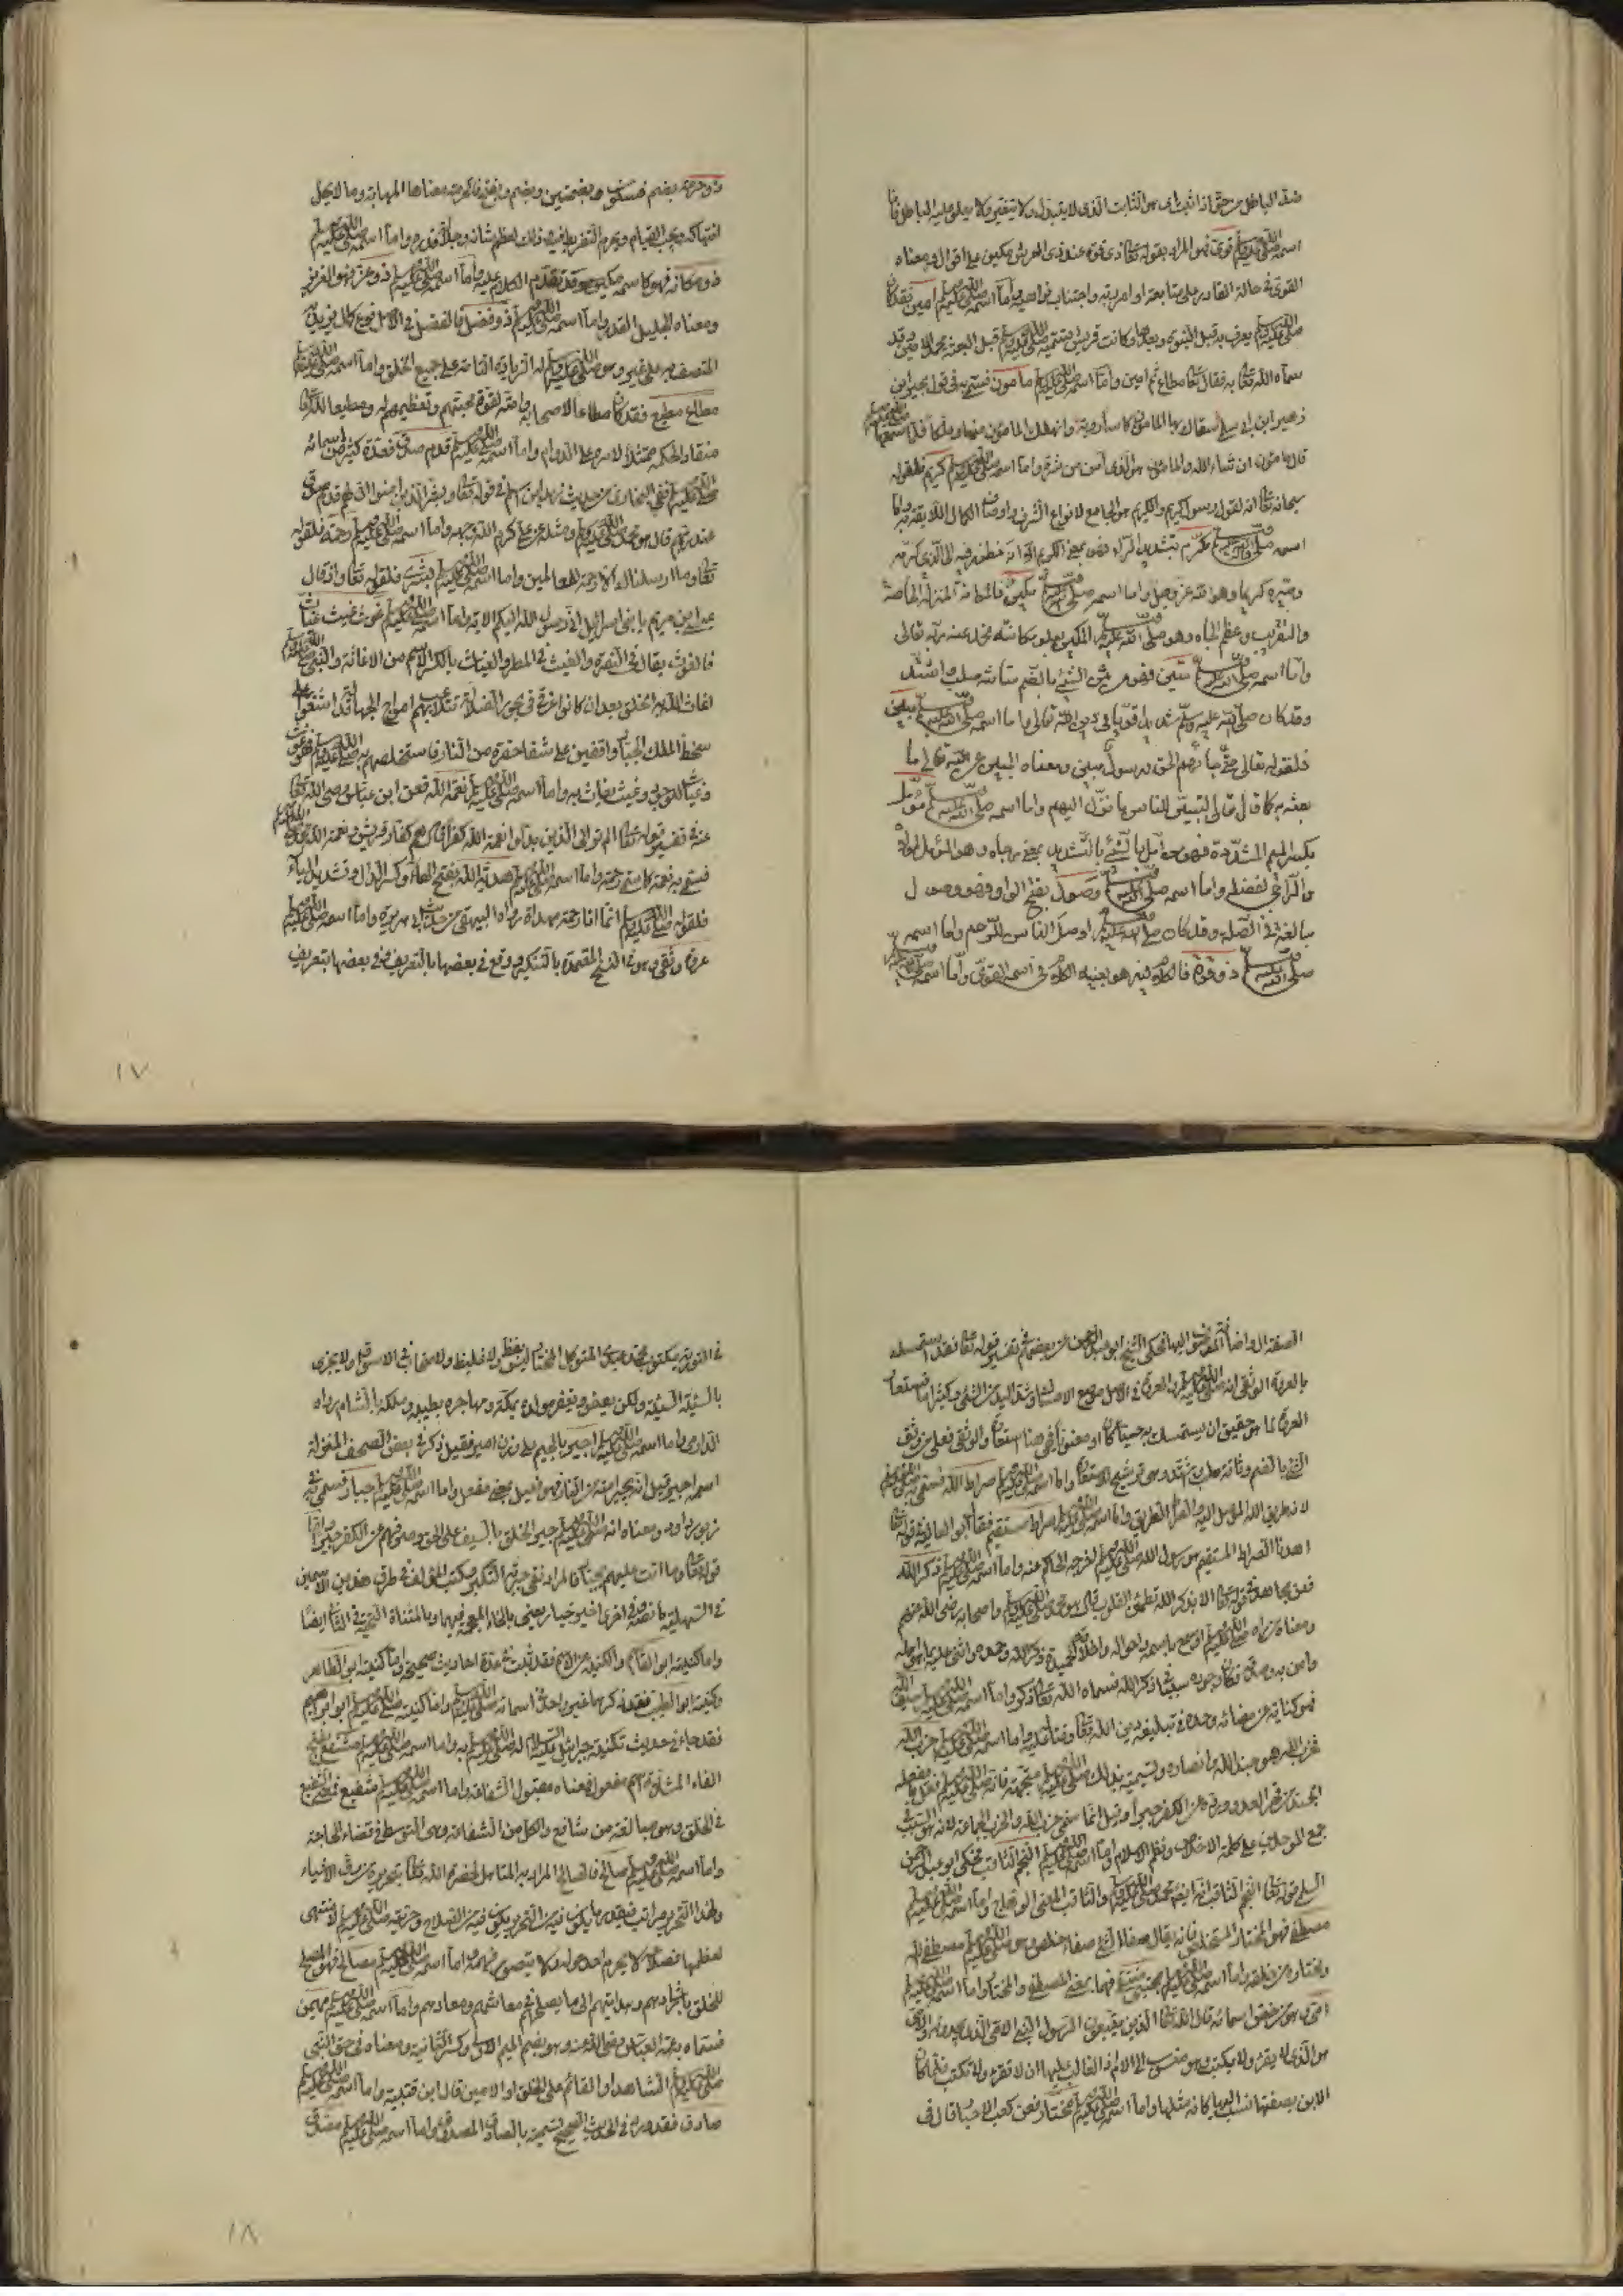 ضد الباطل من حق اذا ثبت اى هو الثابت الذى لا يتبدل ولا يتغير ولا يعلو عليه الباطل واما
اسمه صلى الله عليه وسلم قوى فهو المراد بقوله تعالى ذى قوة عند ذى العرش مكين على اقوال ومعناه
القوى فى حاله القادر على متابعة اوامر ربه واجتناب نواهيه واما اسمه صلى الله عليه وسلم امين فقد كان
صلى الله عليه وسلم يعرف به قبل النبوة وبعدها وكانت قريش تسميه صلى الله عليه وسلم قبل البعثة محمد الامين وقد
سماه الله تعالى به فقال تعالى مطاع ثم امين واما اسمه صلى الله عليه وسلم مأمون فسمى به فى قول بجير ابن
زهير ابن ابى سلمى سقاك بها المامون كاسا روية وانهلك المامون منها وعلكا فلما سمعها
قال مأمون ان شاء الله والمامون هو الذى أمن من شره واما اسمه صلى الله عليه وسلم كريم فلقوله
سبحانه تعالى انه لقول رسول كريم والكريم هو الجامع لانواع الشرف واوصاف الكمال اللائقة به واما
اسمه صلى الله عليه وسلم مكرم بتشديد الراء فهو بمعنى الكريم الا انه منظور فيه الى الذى كرمه
وصيره كريما وهو الله عز وجل واما اسمه صلى الله عليه وسلم مكين فالمكانة المنزلة الخاصة
والتقريب وعظم الجاه وهو صلى الله عليه وسلم المكين بعلو مكانته محله عند ربه تعالى
واما اسمه صلى الله عليه وسلم متين فهو من متن الشئ بالضم متانة صلب واشتد
وقد كان صلى الله عليه وسلم شديدا قويا فى دين الله تعالى واما اسمه صلى الله عليه وسلم مبين
فلقوله تعالى حتى جاءهم الحق ورسول مبين ومعناه المبين عن الله تعالى ما
بعثه به كما قال تعالى لتبين للناس ما نزل اليهم واما اسمه صلى الله عليه وسلم مؤمل
بكسر الميم المشددة فهو من امل الشئ بالتشديد بمعنى رجاه وهو المؤمل لمولاه
والراجى لفضله واما اسمه صلى الله عليه وسلم وصول بفتح الواو فهو وصول
مبالغة فى الصلة وقد كان صلى الله عليه وسلم اوصل الناس للرحم واما اسمه
صلى الله عليه وسلم ذو قوة فالكلام فيه هو بعينه الكلام فى اسمه القوى واما اسمه صلى الله عليه وسلم
ذو حرمة بضم فسكون وبضمتين وبضم وبفتح فالحرمة معناها المهابة وما لا يحل
انتهاكه ويجب القيام ويحرم التفريط فيه وذلك لعظم شانه وجلالة قدره واما اسمه صلى الله عليه وسلم
ذو مكانة فهو كاسمه مكين وقد تقدم الكلام عليه واما اسمه صلى الله عليه وسلم ذو عز فهو العزيز
ومعناه الجليل القدر واما اسمه صلى الله عليه وسلم ذو فضل فالفضل فى الاصل نوع كمال يزيد به
المتصف به على غيره وهو صلى الله عليه وسلم له الزيادة التامة على جميع الخلق واما اسمه صلى الله عليه وسلم
مطاع مطيع فقد كان مطاعا لاصحابه وامته لقوة محبتهم وتعظيمهم له ومطيعا لله تعالى
منقادا لحكمه ممتثلا لامره على الدوام واما اسمه صلى الله عليه وسلم قدم صدق فعده كثير من اسمائه
صلى الله عليه وسلم ففى البخارى من حديث زيد ابن اسلم فى قوله تعالى وبشر الذين امنوا ان لهم قدم صدق
عند ربهم قال هو محمد صلى الله عليه وسلم ومثله عن على كرم الله وجهه واما اسمه صلى الله عليه وسلم رحمة فلقوله
تعالى وما ارسلناك الا رحمة للعالمين واما اسمه صلى الله عليه وسلم بشرى فلقوله تعالى واذ قال
عيسى ابن مريم يا بنى اسرائيل انى رسول الله اليكم الاية واما اسمه صلى الله عليه وسلم غوث غيث غياث
فالغوث يقال فى النصرة والغيث فى المطر والغياث بالكسر الاسم من الاغاثة والنبى صلى الله عليه وسلم
اغاث الله به الخلق بعد ان كانوا غرقى فى بحور الضلالة تتلاعب بهم امواج الجهالة قد اشفوا على
سخط الملك الجبار واقفين على شفا حفرة من النار فاستخلصهم به صلى الله عليه وسلم فهو غوث
وغياث للوجود وغيث يغاث به واما اسمه صلى الله عليه وسلم نعمة الله فعن ابن عباس رضى الله تعالى
عنه فى تفسير قوله تعالى الم تر الى الذين بدلوا نعمة الله كفرا قال هم كفار قريش ونعمة الله محمد صلى الله عليه وسلم
فسمى به نعمة كما سمى رحمة واما اسمه صلى الله عليه وسلم هدية الله بفتح الهاء وكسر الدال وتشديد الياء
فلقوله صلى الله عليه وسلم انما انا رحمة مهداة رواه البيهقى من حديث ابى هريرة واما اسمه صلى الله عليه وسلم
عروة وثقى وهو فى النسخ المعتمدة بالتنكير ووقع فى بعضها بالتعريف وفى بعضها بتعريف
١٧
الصفة ال واضافة الموصوف اليها فحكى الشيخ ابو عبد الرحمن عن بعضهم فى تفسير قوله تعالى فقد استمسك
بالعروة الوثقى انه محمد صلى الله عليه وسلم والعروة فى الاصل موضع الامساك وشد اليد من الشئ وكثيرا ما تستعار
العروة لما هو حقيق ان يستمسك به حسيا كان او معنويا فهى هنا استعارة والوثقى فعلى من وثق
الشئ بالضم وثاقة صلب واشتد وهى ترشيح للاستعارة واما اسمه صلى الله عليه وسلم صراط الله فسمى به
لانه طريق الله الموصل اليه والصراط الطريق واما اسمه صلى الله عليه وسلم صراط مستقيم فقال ابو العالية فى قوله تعالى
اهدنا الصراط المستقيم هو رسول الله صلى الله عليه وسلم اخرجه الحاكم عنه واما اسمه صلى الله عليه وسلم ذكر الله
فعن مجاهد فى قوله تعالى الا بذكر الله تطمئن القلوب قال هو محمد صلى الله عليه وسلم واصحابه رضى الله عنهم
ومعناه من راه صلى الله عليه وسلم او سمع باسمه واحواله واخلاقه الحميدة ذكر الله
وامن به وصدقه فكان وجوده سببا فى ذكر الله فسماه الله تعالى ذكرا واما اسمه صلى الله عليه وسلم سيف الله
فهو كناية عن مضائه وحده فى تبليغه دين الله تعالى وقتاله عليه واما اسمه صلى الله عليه وسلم حزب الله
فحزب الله هو جند الله وانصاره وتسميته بذلك صلى الله عليه وسلم متجهة فانه صلى الله عليه وسلم فعل ما يفعله
الجند من قهر العدو ورده عن الكفر جبرا وقيل انما سمى حزب الله والحزب الجماعة لانه هو السبب فى
جمع الموحدين على كلمة الاخلاص ونظم الاسلام واما اسمه صلى الله عليه وسلم النجم الثاقب فحكى ابو عبد الرحمن
السلمى فى قوله تعالى النجم الثاقب انه ايضا محمد صلى الله عليه وسلم والثاقب المضئ الوهاج واما اسمه صلى الله عليه وسلم
مصطفى فهو المختار المستخلص فانه يقال صفا الشئ صفاء خلص وهو صلى الله عليه وسلم مصطفى الله
ومختاره من خلقه واما اسمه صلى الله عليه وسلم مجتبى منتقى فهما بمعنى المصطفى والمختار واما اسمه صلى الله عليه وسلم
امى وهو من خصوص اسمائه قال الله تعالى الذين يتبعون الرسول النبى الامى الذى يجدونه والامى
هو الذى لا يقرؤ ولا يكتب وهو منسوب الى الام اذ الغالب عليها ان لا تقرء ولا تكتب فلما كان
الابن بصفتها نسب اليها كانه مثلها واما اسمه صلى الله عليه وسلم مختار فعن كعب الاحبار قال فى
فى التورية مكتوب محمد عبدى المتوكل المختار ليس بفظ ولا غليظ ولا سخاب فى الاسواق ولا يجزى
بالسيئة السيئة ولكن يعفو ويغفر مولده بمكة ومهاجره بطيبة وملكه بالشام رواه
الدارمى واما اسمه صلى الله عليه وسلم اجير بالجيم على وزن امير فقيل ذكر فى بعض الصحف المنزلة
اسمه اجير قيل انه يجير امته من النار فهو فعيل بمعنى مفعل واما اسمه صلى الله عليه وسلم جبار فسمى به فى
زبور داود ومعناه انه صلى الله عليه وسلم جبر الخلق بالسيف على الحق وصدهم عن الكفر جبرا واما
قوله تعالى وما انت عليهم بجبار فالمراد نفى جبرية التكبر وكتب المؤلف فى طرة هذين الاسمين
فى السهلية ما نصه وفى اخرى اخير خيار يعنى بالخاء المعجمة فيهما وبالمثناة التحتية فى الثانى ايضا
واما كنيته ابو القاسم والكنية من الاسم فقد ثبت فى عدة احاديث صحيحة واما كنيته ابو الطاهر
وكنيته ابو الطيب فقد ذكرهما غير واحد فى اسمائه صلى الله عليه وسلم واما كنيته صلى الله عليه وسلم ابو ابراهيم
فقد جاء فى حديث تكنية جبرائيل عليه السلام له صلى الله عليه وسلم به واما اسمه صلى الله عليه وسلم مشفع بفتح
الفاء المشددة اسم مفعول فمعناه مقبول الشفاعة واما اسمه صلى الله عليه وسلم شفيع فمعناه الشفيع
فى الخلق وهو مبالغة من شافع والكل من الشفاعة وهى التوسط فى قضاء الحاجة
واما اسمه صلى الله عليه وسلم صالح فالصالح المراد به المتاهل لحضرة الله تعالى بتحرره من رق الاشياء
ولهذا التحرير مراتب فبقدر ما يكون فيه من التحرير يكون فيه من الصلاح وحريته صلى الله عليه وسلم لا منتهى
لعظمها فصلاحه لا يحوم احد حوله ولا يتصور فهمه واما اسمه صلى الله عليه وسلم مصلح فهو المصلح
للخلق بانجادهم وهدايتهم الى ما يصلحهم فى معاشهم ومعادهم واما اسمه صلى الله عليه وسلم مهيمن
فسماه به عمه العباس رضى الله عنه وهو بضم الميم الاولى وكسر الثانية ومعناه فى حق النبى
صلى الله عليه وسلم الشاهد او القائم على الخلق او الامين قال ابن قتيبة واما اسمه صلى الله عليه وسلم
صادق فقد ورد فى الحديث الصحيح تسميته بالصادق المصدوق واما اسمه صلى الله عليه وسلم مصدق
١٨